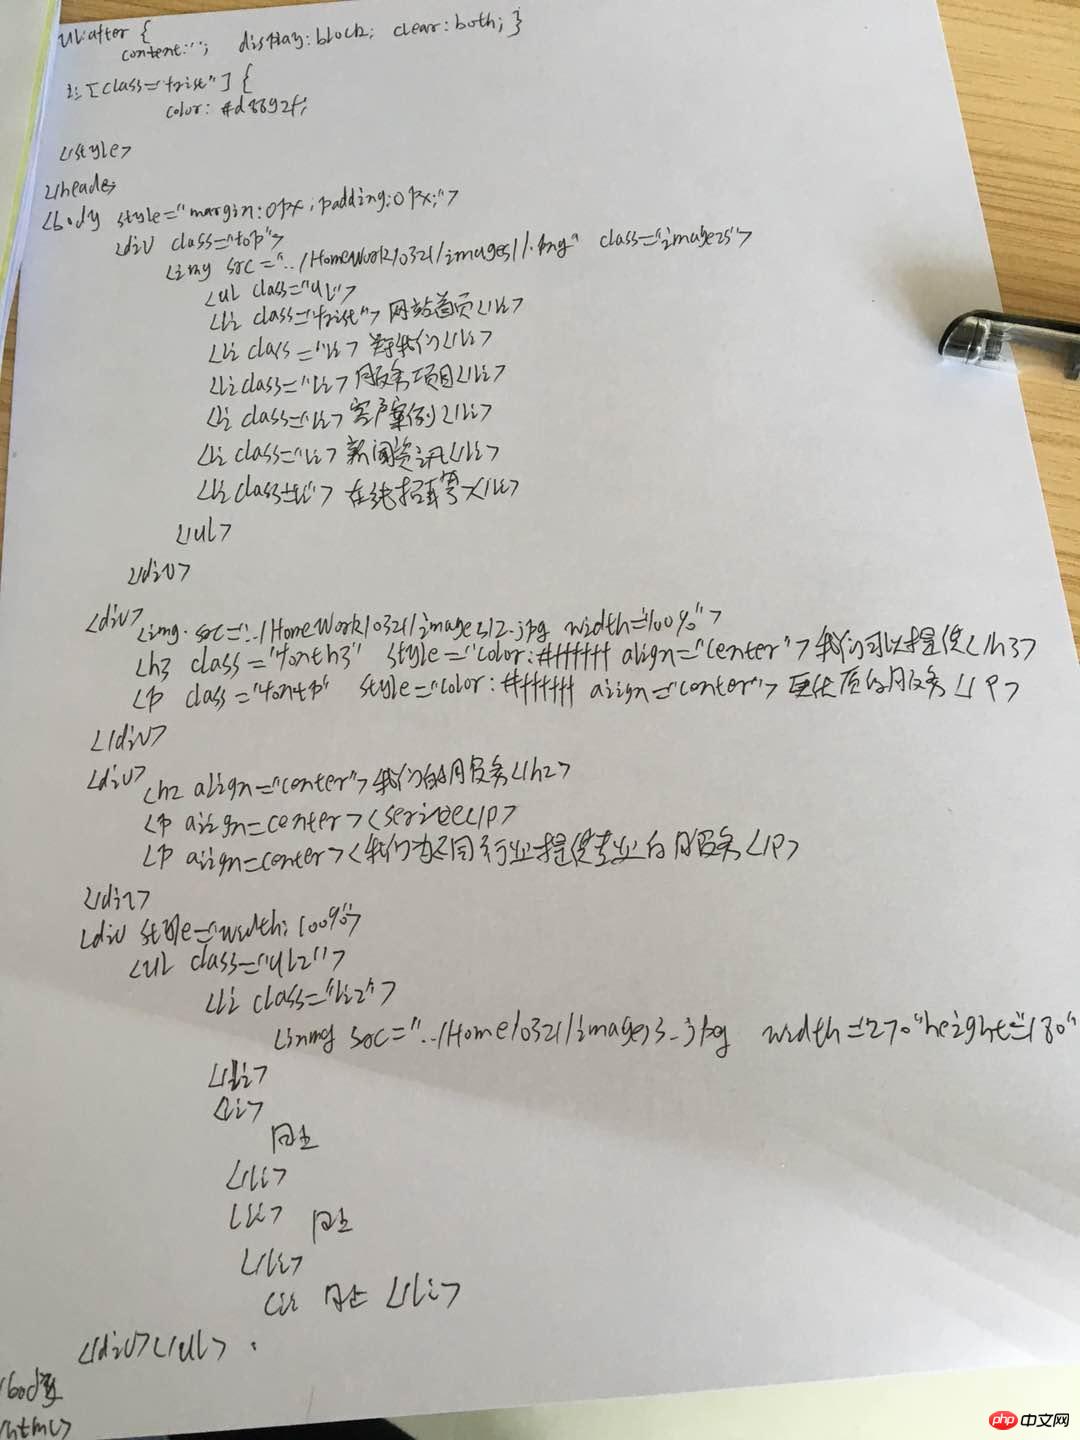 ul:after {
content:''; display:block; clear:both; }
li [class="frist"] {
color: #d8892f;
</style>
</head>
<body style="margin:0px; padding:0px;">
<div class="top">
<img src="../HomeWork/0321/images/1.png" class="images">
<ul class="ul">
<li class="frist">网站首页</li>
<li class="li">关于我们</li>
<li class="li">服务项目</li>
<li class="li">客户案例</li>
<li class="li">新闻资讯</li>
<li class="li">在线招聘</li>
</ul>
<div>
<div>
<img src="../HomeWork/0321/images/2.jpg width="100%">
<h3 class="fonth3" style="color:#ffffff align="center">我们可以提供</h3>
<p class="fontp" style="color:#ffffff align="center">更优质的服务</p>
</div>
<div>
<h2 align="center">我们的服务</h2>
<p align=center><serive</p>
<p align=center><我们为不同行业提供专业的服务</p>
</div>
<div style="width:100%">
<ul class="ul2">
<li class="li2">
<inmg src="../Home/0321/images3.jpg width="270" height="180"
</li>
<li>
同上
</li>
<li> 同上
</li>
<li 同上 </li>
</div></ul>
</body>
</html>
php 中文网